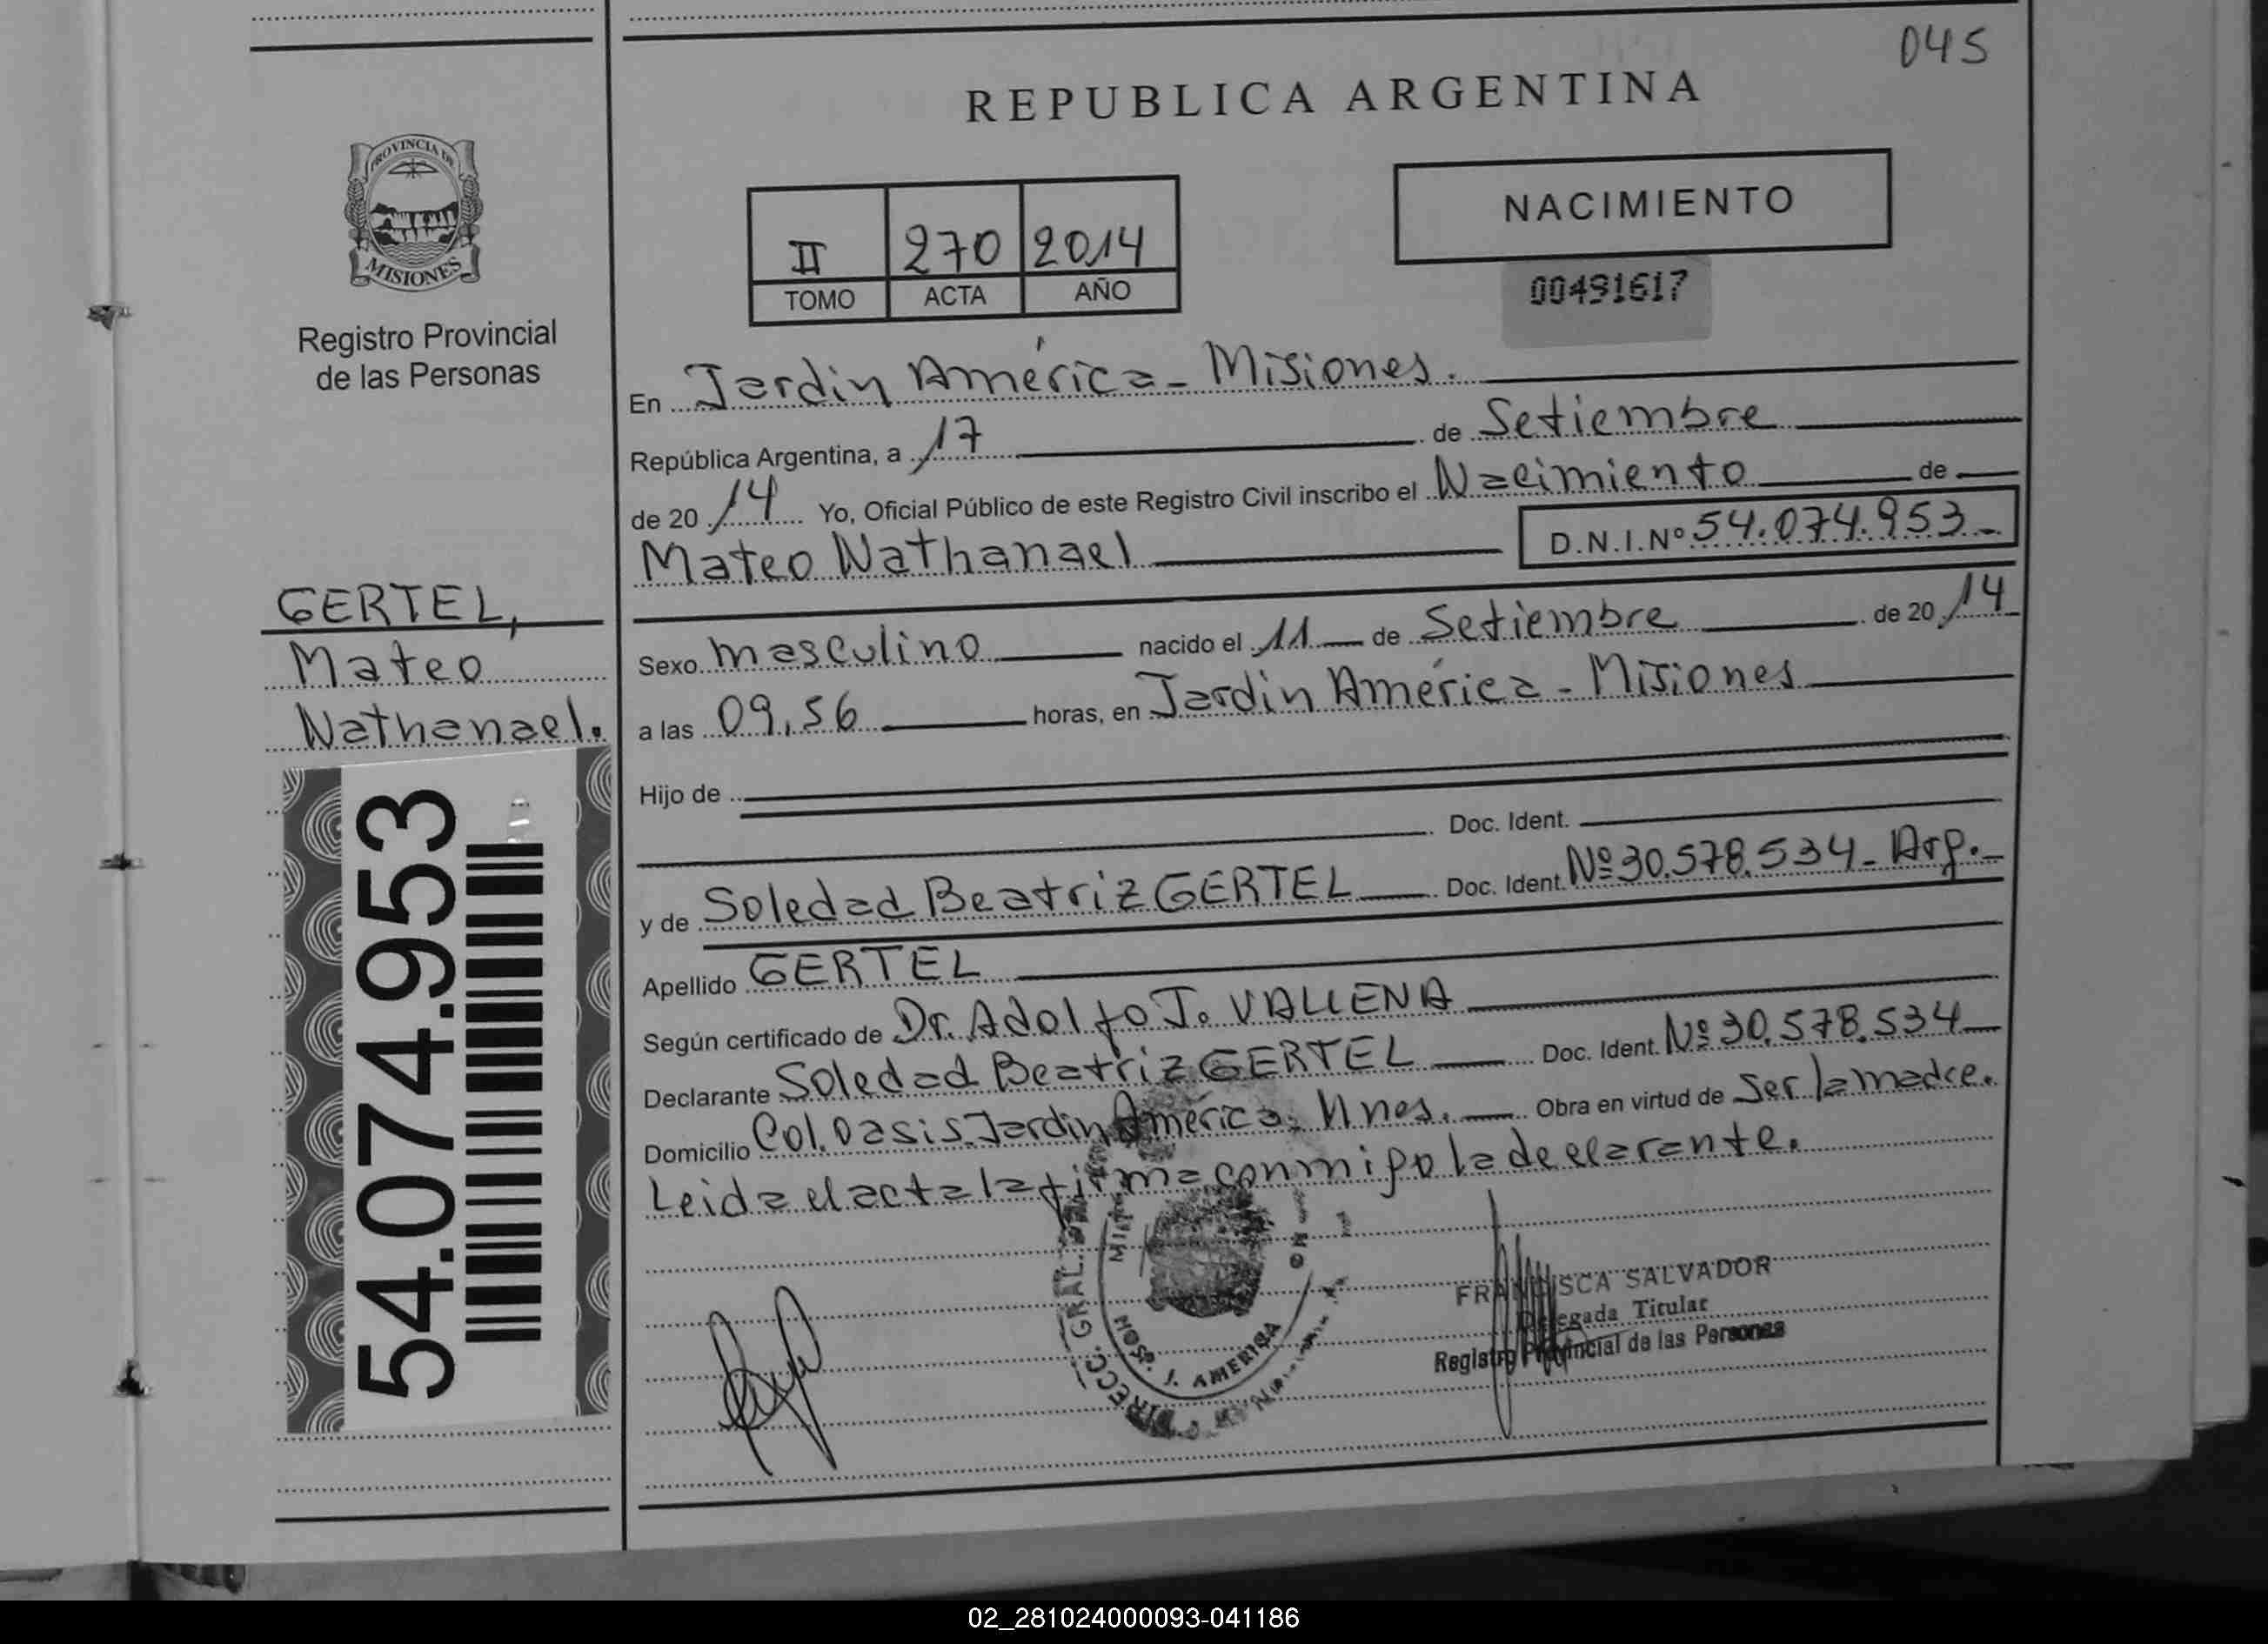 045
REPUBLICA ARGENTINA
PROVINCIA DE
MISIONES
Registro Provincial
de las Personas
II 270 2014
TOMO ACTA AÑO
NACIMIENTO
00491617
En Jardin América - Misiones.
República Argentina, a 17 de Setiembre
de 20 14 Yo, Oficial Público de este Registro Civil inscribo el Nacimiento de
Mateo Nathanael D.N.I.Nº 54.074.953-
GERTEL,
Mateo
Nathanael.
54.074.953
Sexo masculino nacido el 11 de Setiembre de 20 14
a las 09,56 horas, en Jardin América - Misiones
Hijo de
Doc. Ident.
y de Soledad Beatriz GERTEL Doc. Ident. Nº 30.578.534- Arg.-
Apellido GERTEL
Según certificado de Dr. Adolfo J. VALLENA
Declarante Soledad Beatriz GERTEL Doc. Ident. Nº 30.578.534
Domicilio Col. Oasis. Jardin América, Mnes. Obra en virtud de Ser la madre.
Leida el acta la firma conmigo la declarante.
DIRECC. GRAL.
HOSP. J. AMERICA
FRANCISCA SALVADOR
Delegada Titular
Registro Provincial de las Personas
02_281024000093-041186